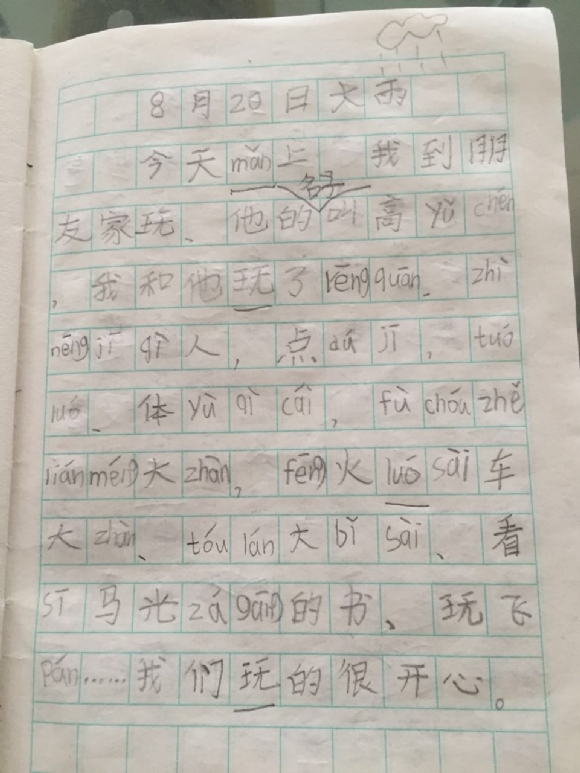 8月20日大雨
今天mǎn上我到朋
友家玩、他的名字叫高yǔ chén
,我和他玩了rēng quān、zhì
nēng jī qì人,点dá jī,tuó
luó、体yù qì cái,fù chóu zhě
lián méng大zhàn,fēng火luó sài车
大zhàn、tóu lán大bǐ sài、看
sī马光zá gāng的书、玩飞
pán……我们玩的很开心。